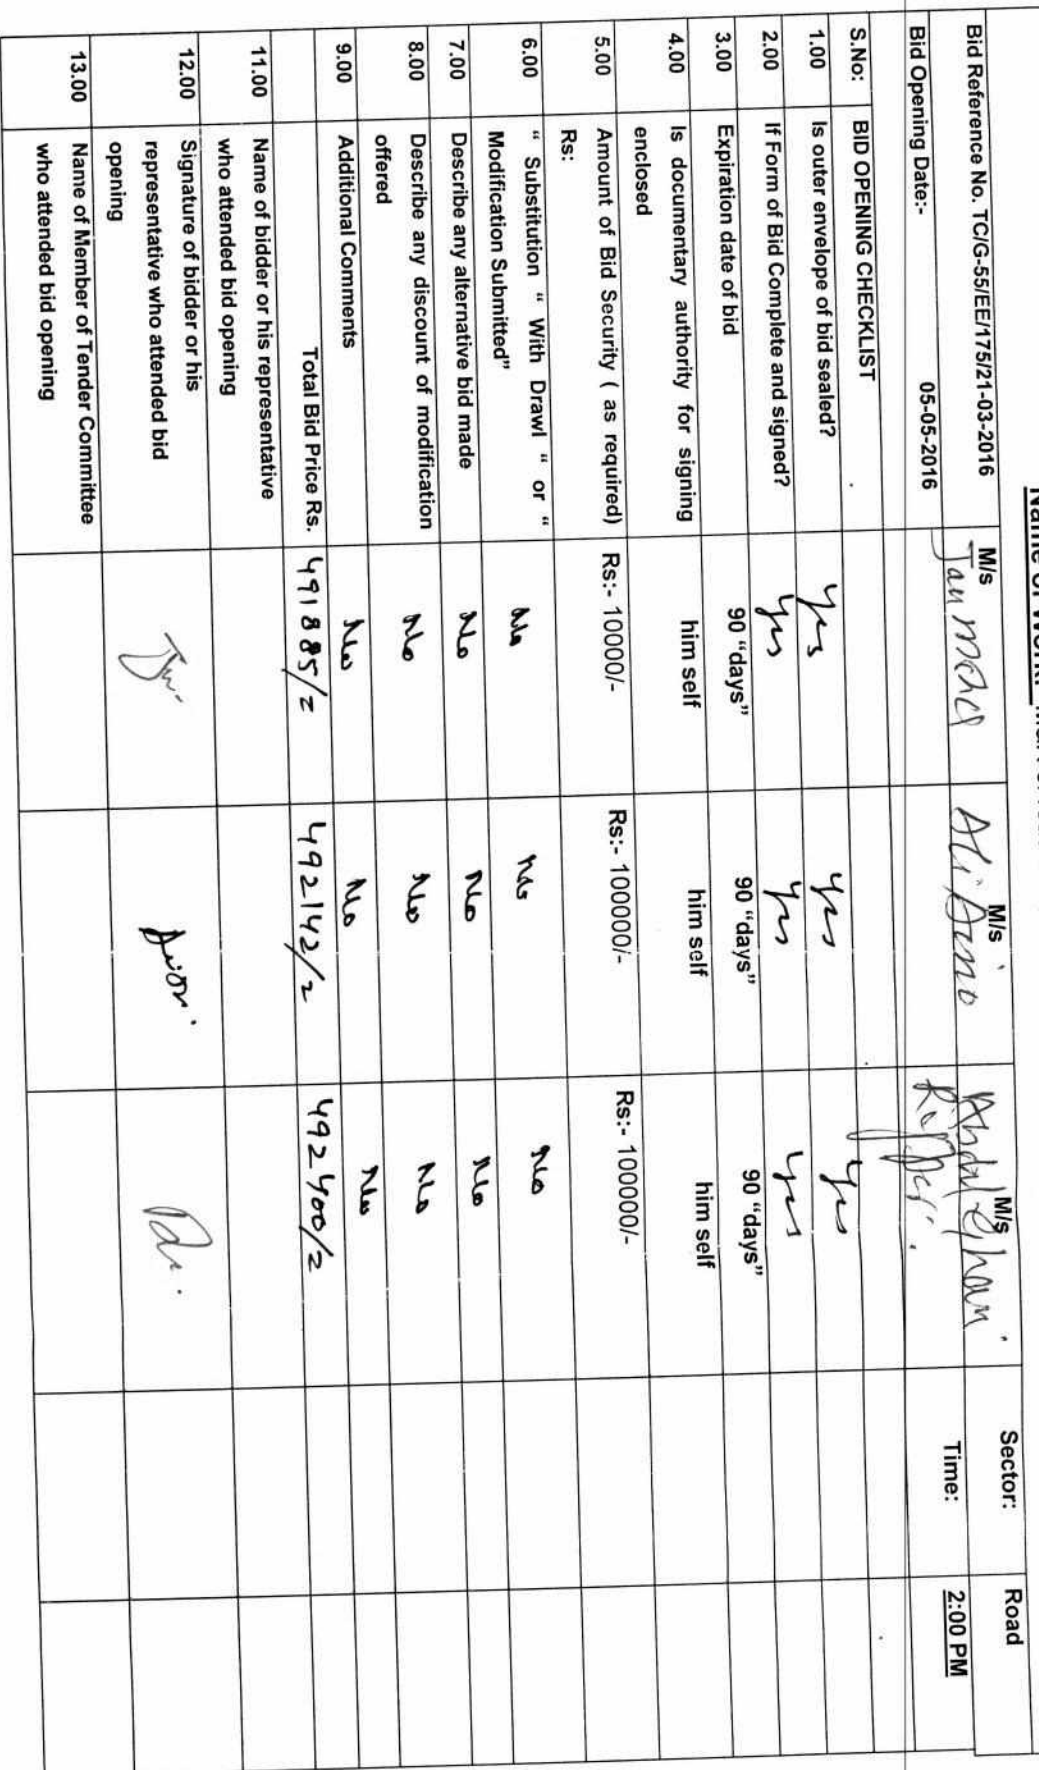 Name of Work:
Bid Reference No. TC/G-55/EE/175/21-03-2016 M/s M/s M/s Sector: Road
Jan Mohd Ali Deno Abdul Ghani
Bid Opening Date:- 05-05-2016 Time: 2:00 PM
S.No: BID OPENING CHECKLIST
1.00 Is outer envelope of bid sealed? Yes Yes Yes
2.00 If Form of Bid Complete and signed? Yes Yes Yes
3.00 Expiration date of bid 90 “days” 90 “days” 90 “days”
4.00 Is documentary authority for signing him self him self him self
enclosed
5.00 Amount of Bid Security ( as required) Rs:- 10000/- Rs:- 100000/- Rs:- 100000/-
Rs:
6.00 “ Substitution “ With Drawl “ or “ No No No
Modification Submitted”
7.00 Describe any alternative bid made No No No
8.00 Describe any discount of modification No No No
offered
9.00 Additional Comments No No No
Total Bid Price Rs. 491885/= 492142/= 492400/=
11.00 Name of bidder or his representative
who attended bid opening
12.00 Signature of bidder or his
representative who attended bid
opening
13.00 Name of Member of Tender Committee
who attended bid opening